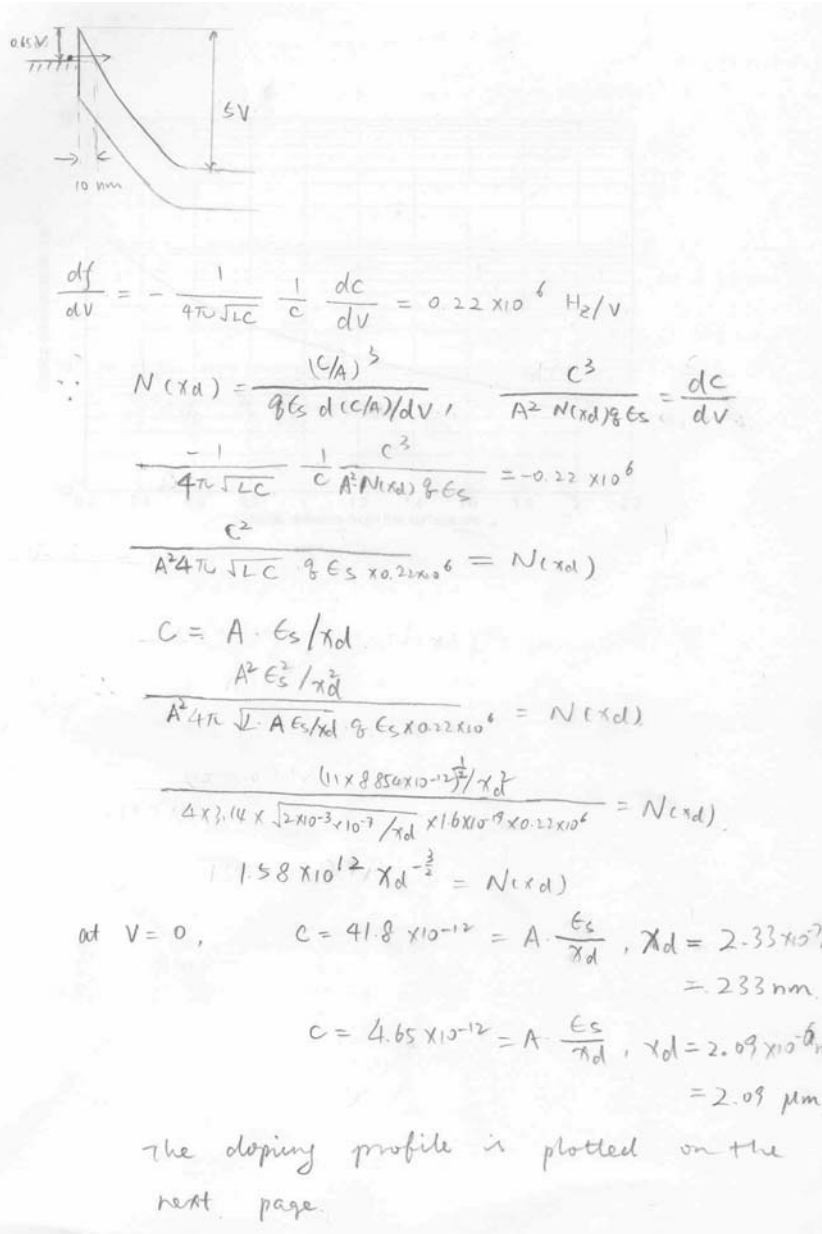 0.65V
5V
10 nm
df/dV = - 1/(4π√LC) 1/C dC/dV = 0.22 ×10^6 Hz/V
∵ N(xd) = (C/A)^3 / (qϵs d(C/A)/dV), C^3 / (A^2 N(xd)qϵs) = dC/dV
-1/(4π√LC) 1/C C^3/(A^2 N(xd) qϵs) = -0.22 ×10^6
C^2 / (A^2 4π √LC · qϵs ×0.22×10^6) = N(xd)
C = A · ϵs/xd
∴ A^2 ϵs^2/xd^2 / (A^2 4π √(L·Aϵs/xd) · qϵs×0.22×10^6) = N(xd)
(11×8.854×10^-12)^(1/2)/xd^2 / (4×3.14× √(2×10^-3×10^-7/xd) ×1.6×10^-19×0.22×10^6) = N(xd)
1.58 ×10^12 xd^(-3/2) = N(xd)
at V = 0, C = 41.8 ×10^-12 = A · ϵs/xd , xd = 2.33×10^-7
= 233 nm.
C = 4.65×10^-12 = A · ϵs/xd , xd = 2.09 ×10^-6 m
= 2.09 μm
The doping profile is plotted on the
next page.